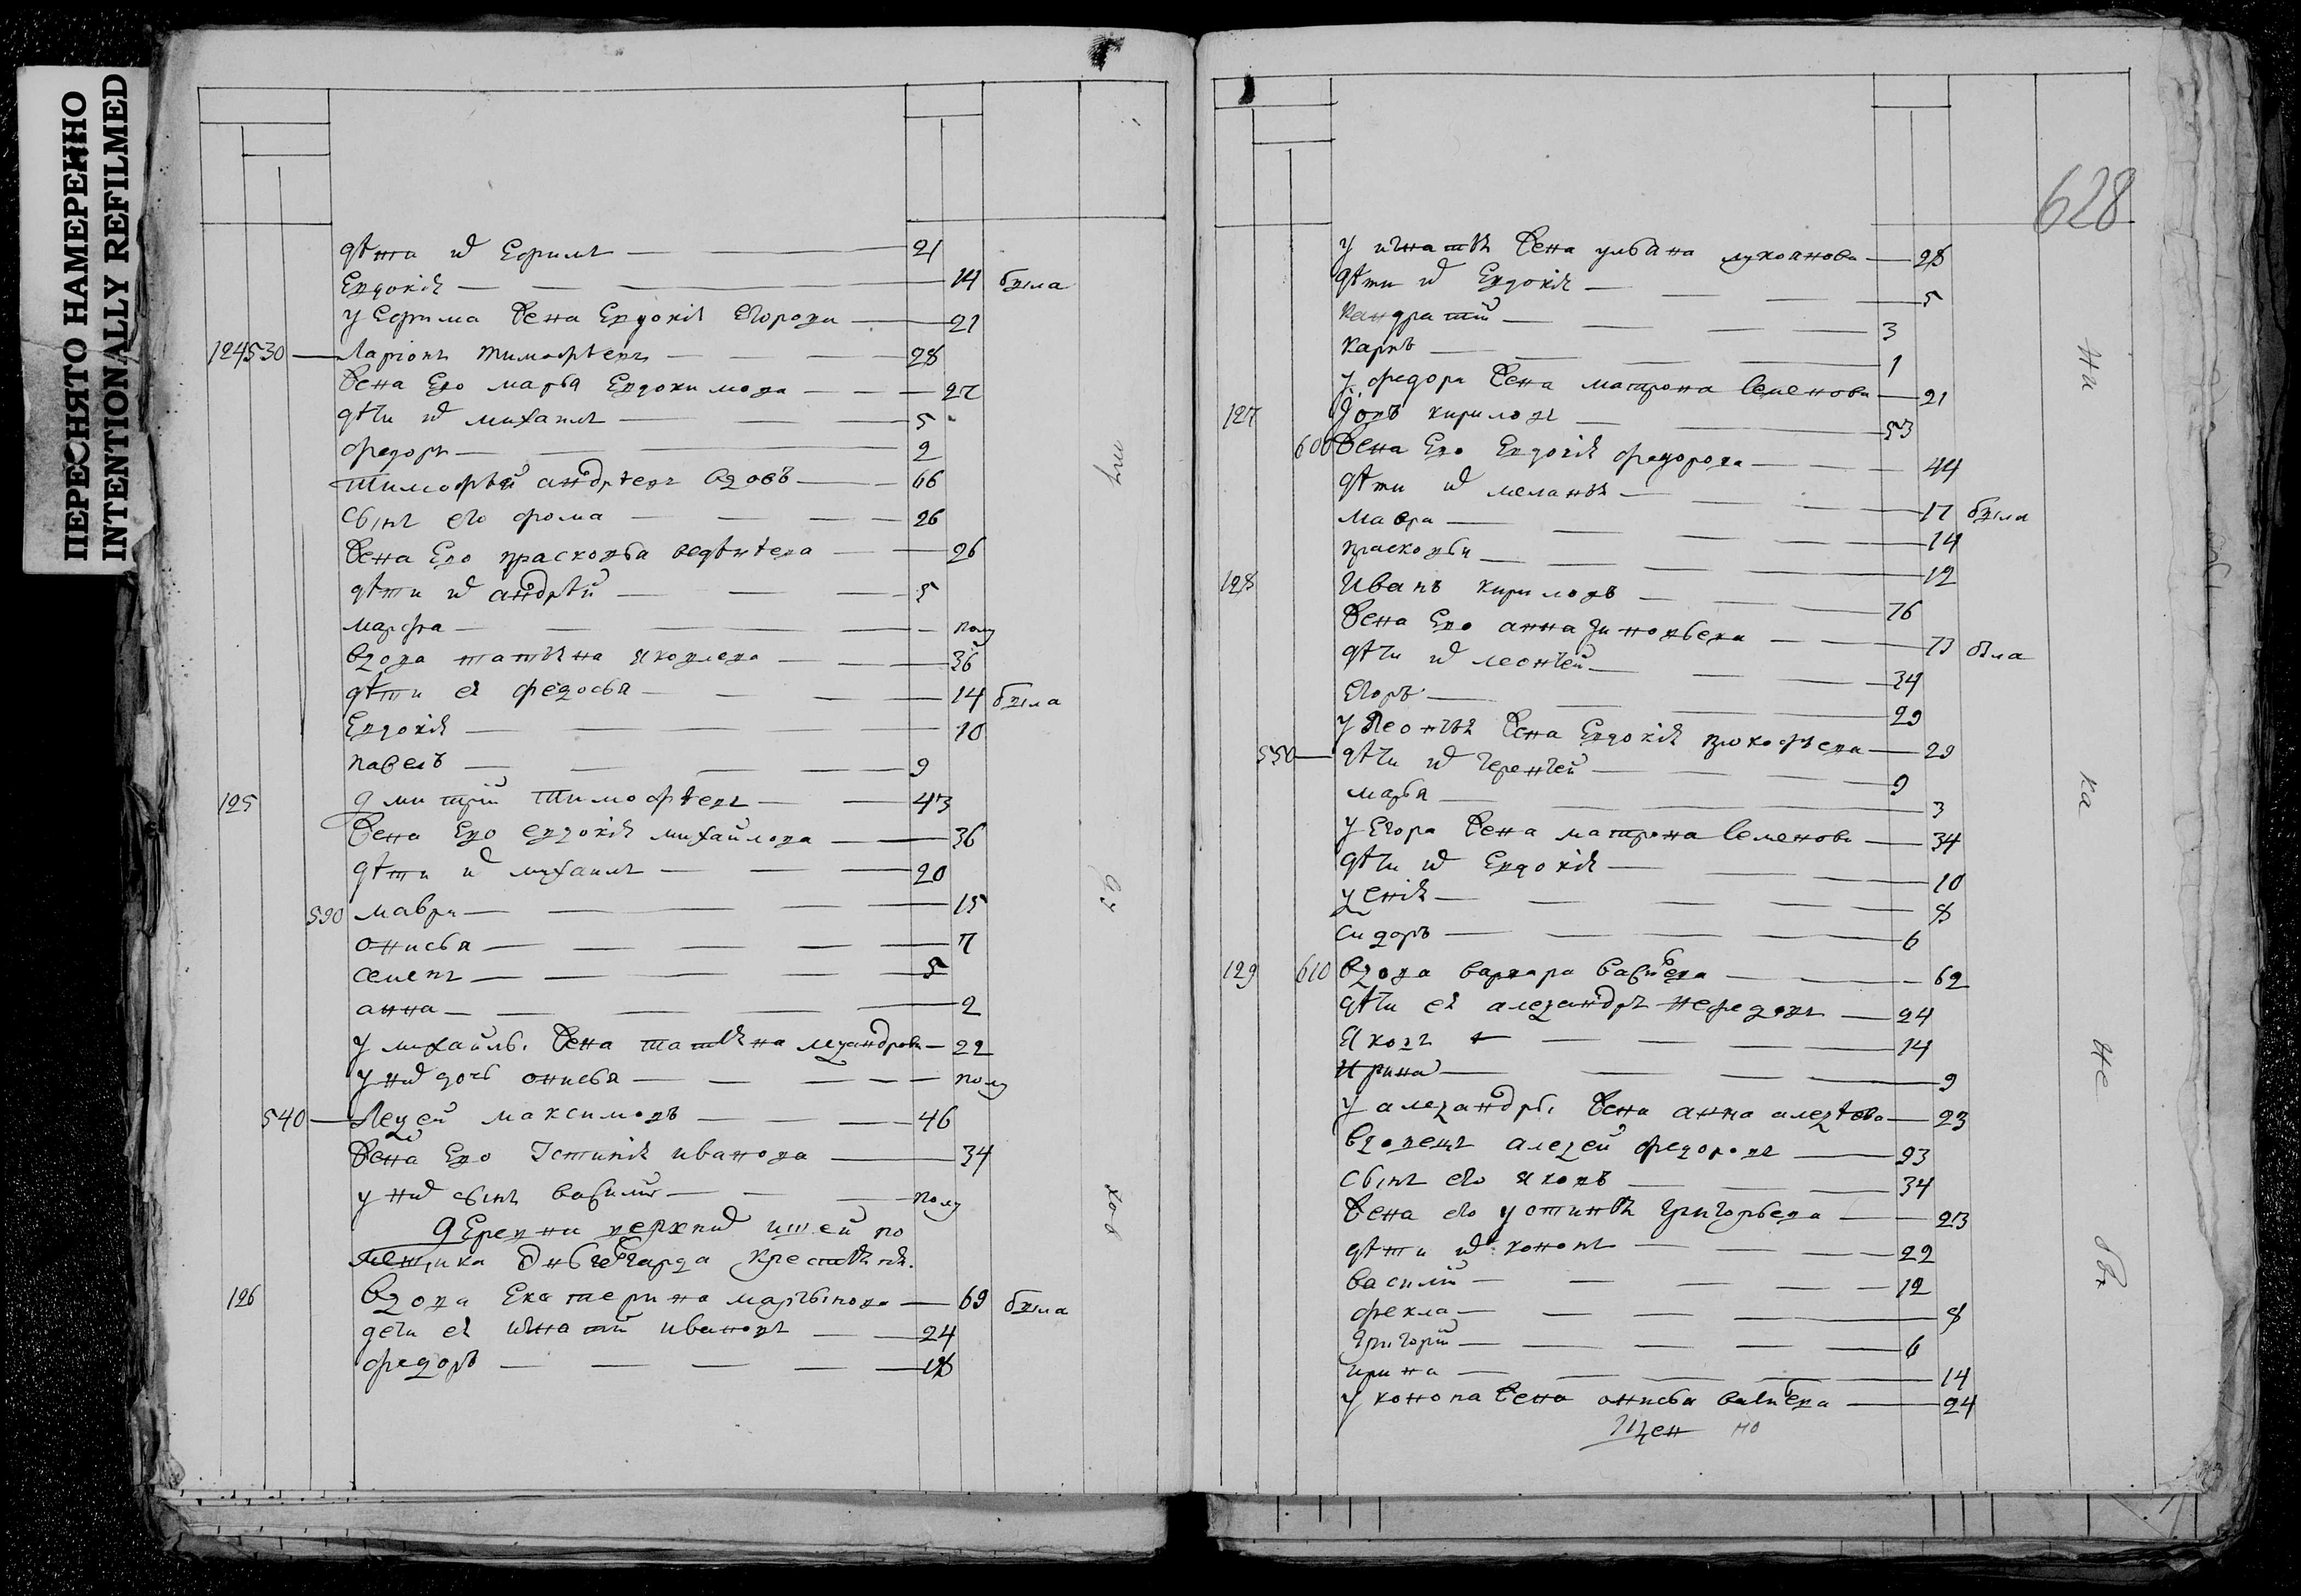 ПЕРЕСНЯТО НАМЕРЕННО
INTENTIONALLY REFILMED
дѣти их Ефимъ 21
Евдокія 14 была
у Ефима жена Евдокія Егорова 21
124 530 Ларіонъ тимофѣевъ 28
жена Ево марья Евдокимова 27
дѣти их михаилъ 5
федоръ 2
тимофѣй андрѣевъ вдовъ 66
сынъ его фома 26
жена Ево прасковья авдѣева 26
дѣти их андрѣй 5
марфа полу
вдова татьяна яковлева 36
дѣти ея федосья 14 была
Евдокія 10
павелъ 9
125 дмитрій тимофѣевъ 43
жена Ево евдокія михайлова 36
дѣти их михаилъ 20
590 мавра 15
онисья 7
семенъ 5
анна 2
у михайлы жена татьяна лександрова 22
у них дочь онисья полу
540 Лексей максимовъ 46
жена Ево Устинія иванова 34
у них сынъ василій полу
деревни верхних ишей по
мещика крестьянъ.
126 вдова Екатерина мартынова 69 была
дети ея игнатий ивановъ 24
федоръ 18
ту
ду
хов
628
у игнатья жена ульяна лукоянова 28
дѣти их Евдокія 5
кандратий 3
карпъ 1
у федора жена матрона семенова 21
127 Іовъ кириловъ 53
600 жена Ево Евдокія федорова 44
дѣти их меланья 17 была
мавра 14
прасковья 12
128 Иванъ кириловъ 76
жена Ево анна зиновьева 73 была
дѣти их леонтей 34
Егоръ 29
у Леонтья жена Евдокія прокофьева 29
550 дѣти их терентей 9
марья 3
у Егора жена матрона семенова 34
дѣти их Евдокія 10
ксенія 8
сидоръ 6
129 610 вдова варвара васильева 62
дѣти ея александръ нефедовъ 24
яковъ 14
Ирина 9
у александры жена анна алексѣева 23
вдовецъ алексей федоровъ 93
сынъ его яковъ 34
жена его устинья григорьева 23
дѣти их кононъ 22
василий 12
фекла 8
григорій 6
ирина 14
у конона жена онисья васильева 24
щен но
ни
ка
не